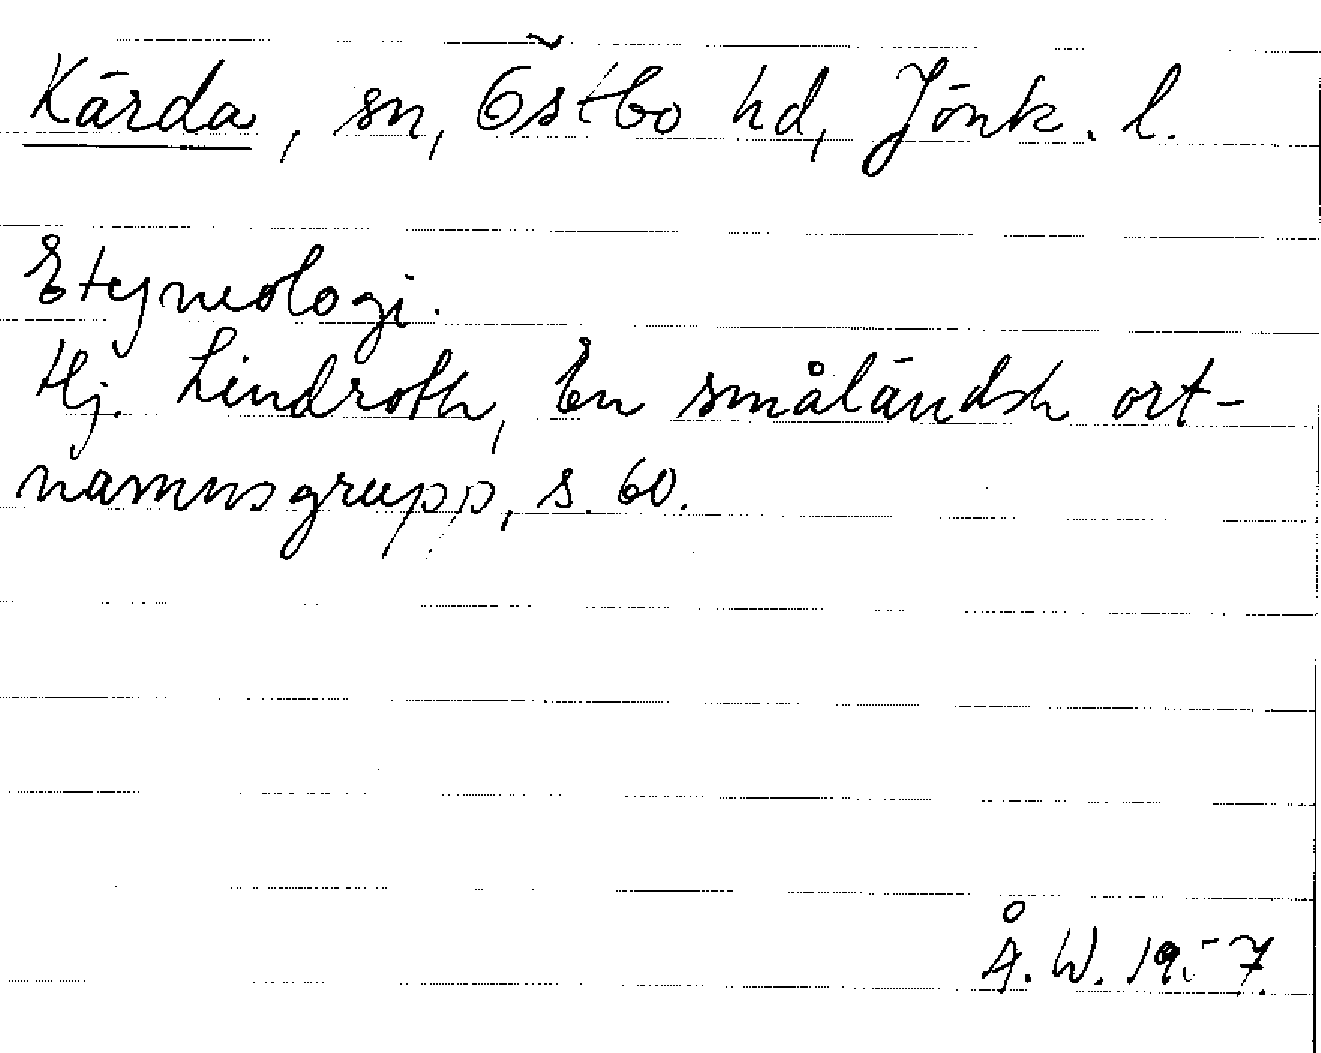 Kärda, sn, Östbo hd, Jönk. l.
Etymologi.
Hj. Lindroth, En småländsk ort-
namnsgrupp, s. 60.
Å. W.